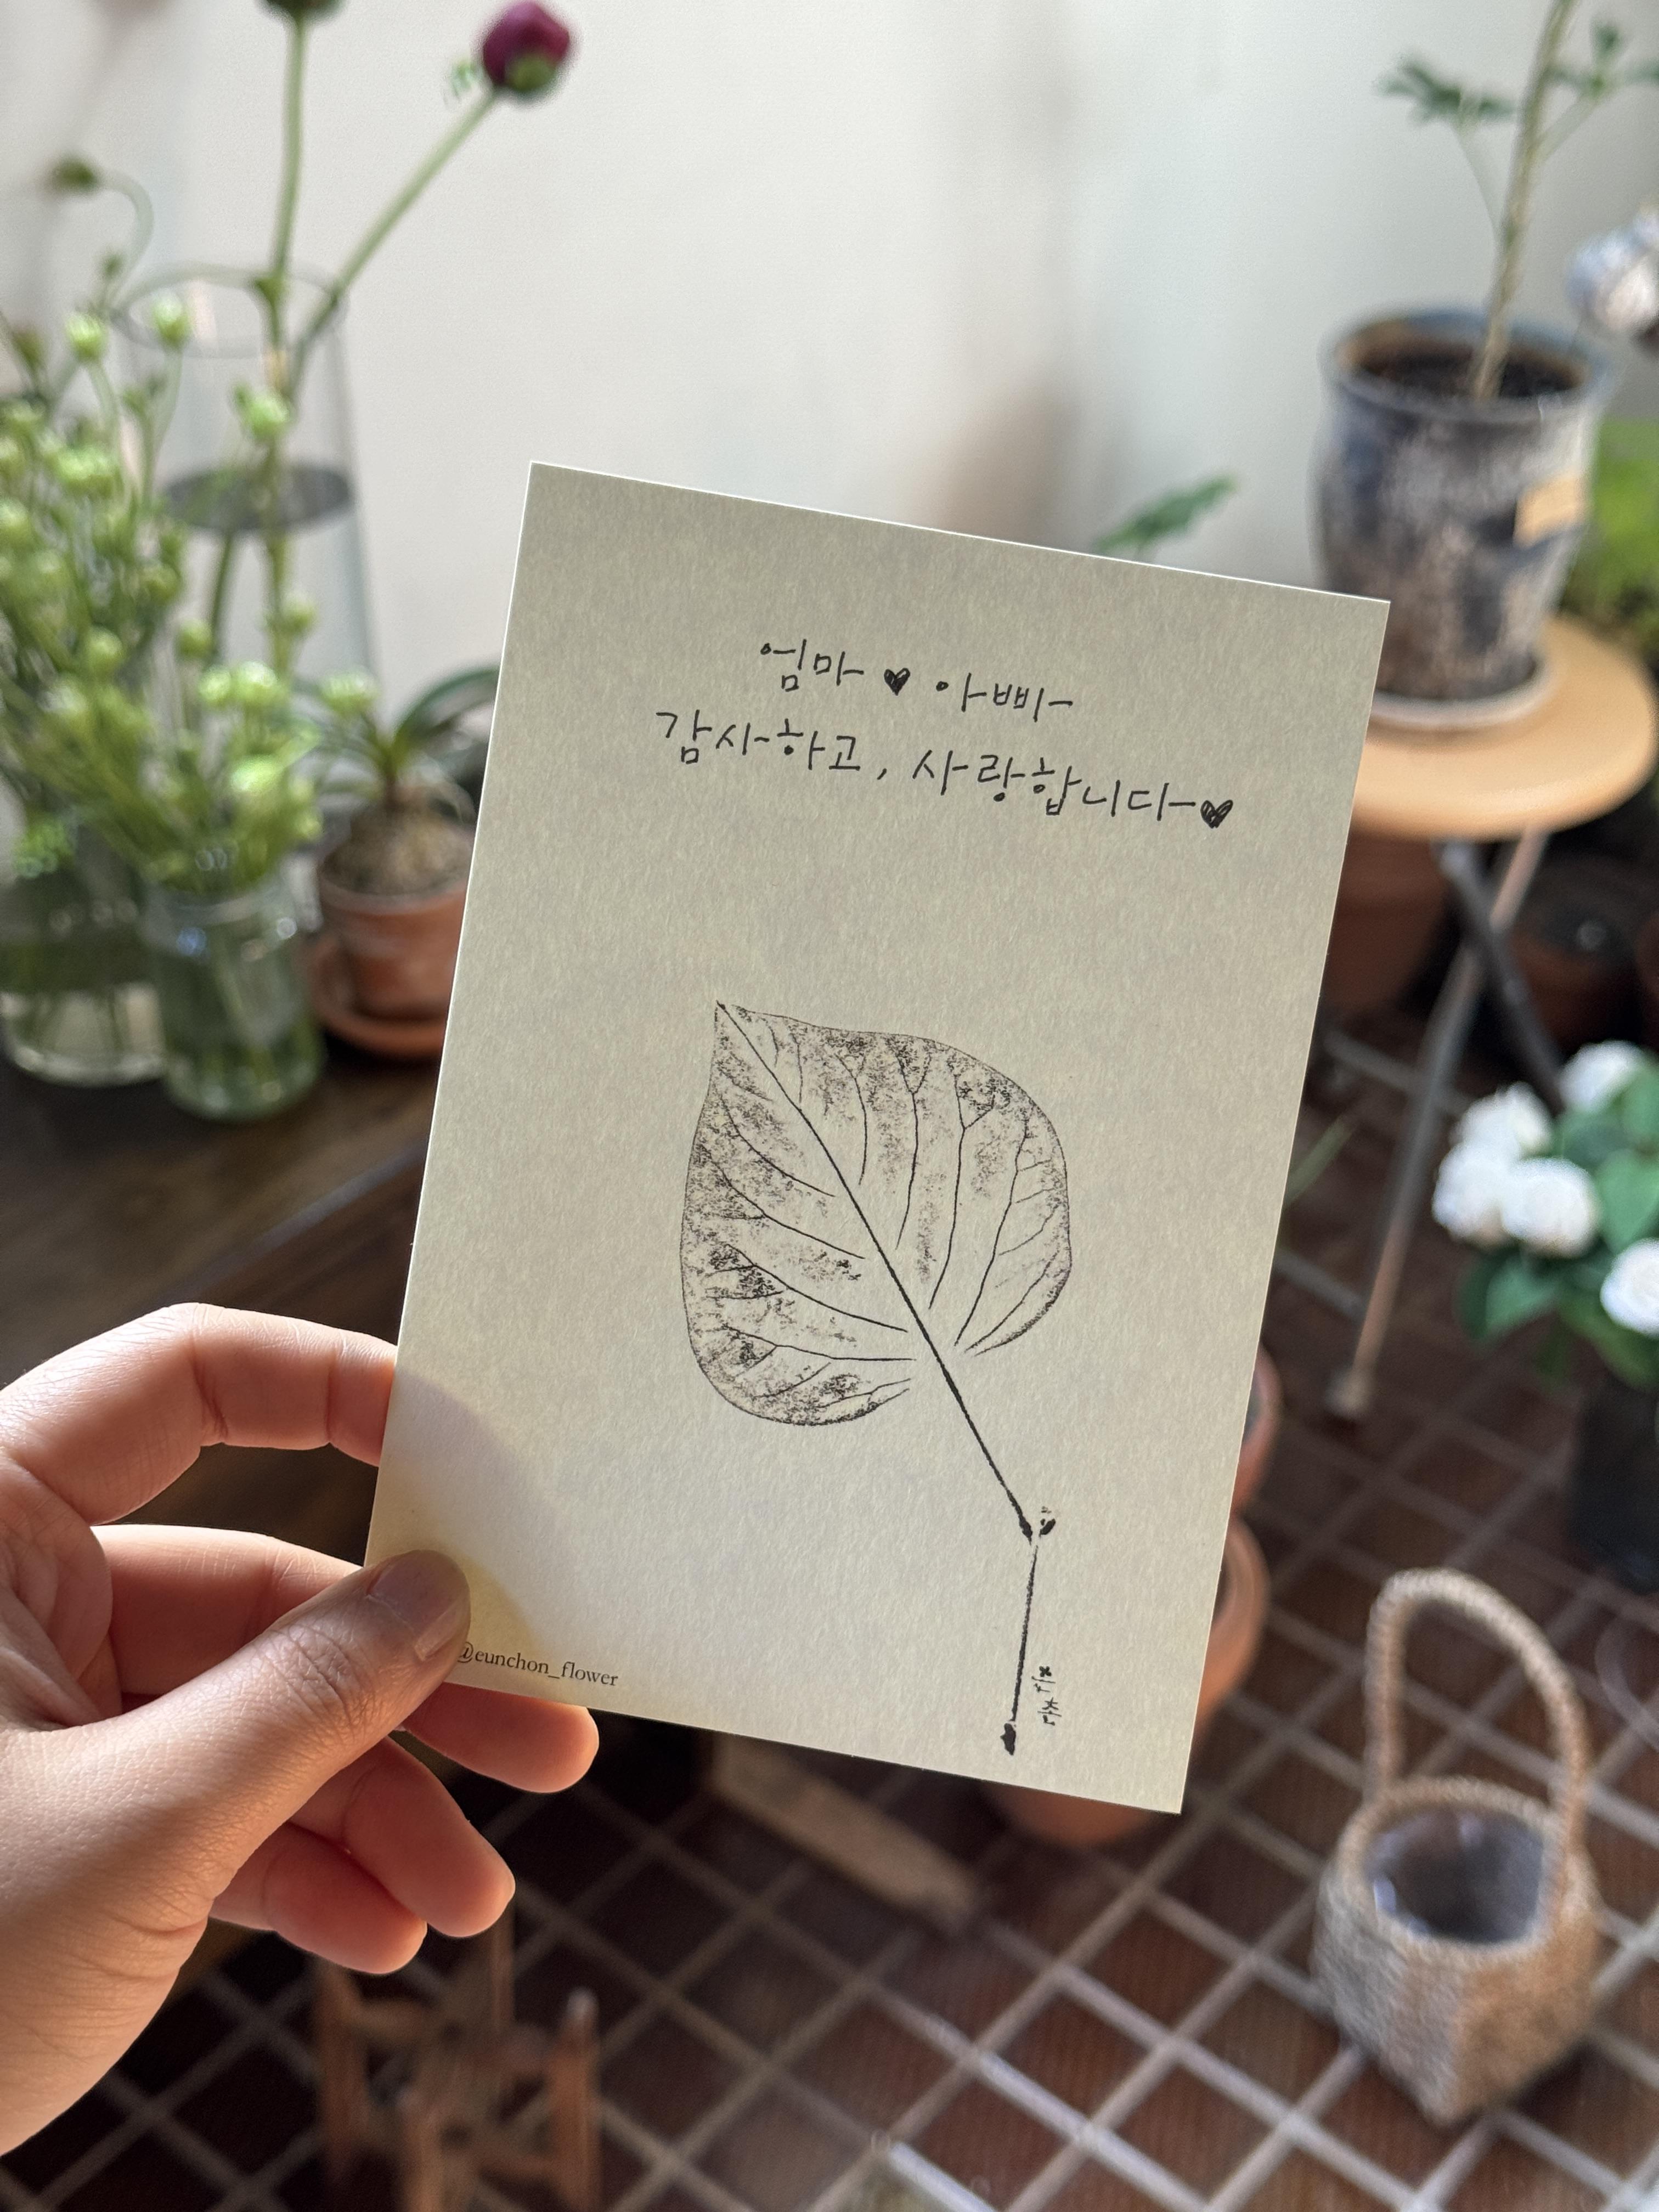 엄마 ♥ 아빠
감사하고, 사랑합니다♥
@eunchon_flower